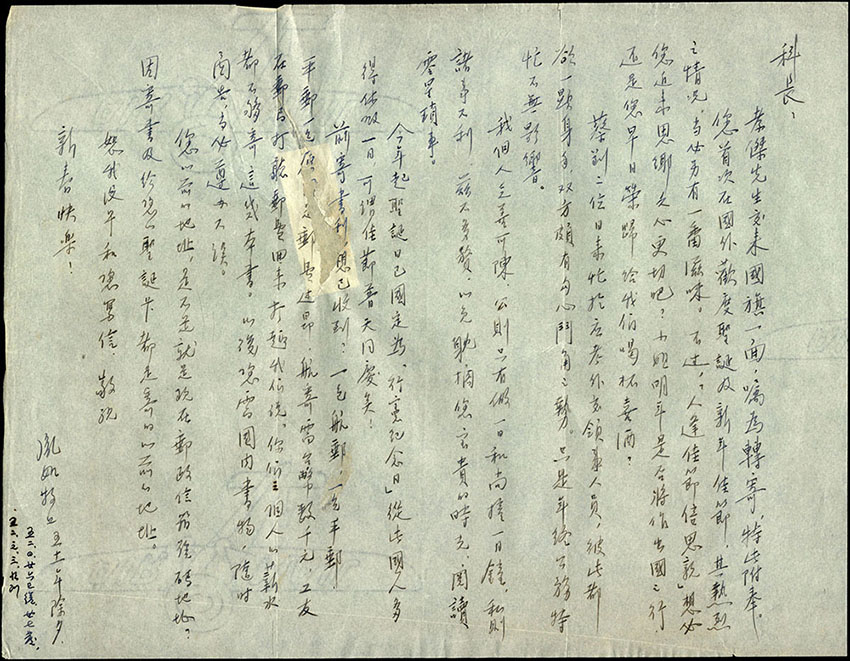 科長：
孝傑先生交來國旗一面，囑為轉寄，特此附奉。
您首次在國外歡度聖誕及新年佳節，其熱烈
之情況，當必另有一番滋味。不过，「人逢佳節倍思親」想必
您近來思鄉之心更切吧？小姐明年是否將作出國之行，
还是您早日榮歸給我们喝杯喜酒？
蔡劉二位日來忙於应考外交領事人員，彼此都
欲一顯身手，双方頗有勾心鬥角之勢。只是年終公務特
忙不無影響。
我個人乏善可陳，公則只有做一日和尚撞一日鐘，私則
諸事不利，茲不多贅，以免躭擱您宝貴的時光，閱讀
零星瑣事。
今年起聖誕日已國定為「行憲紀念日」從此國人多
得休假一日可謂佳節普天同慶矣！
前寄書刊，想已收到？一包航郵，一包平郵，
平郵一包 郵 过 航寄需台幣數千元，工友
在郵局打聽郵費回來打趣我们說，你们三個人的薪水
都不夠寄這幾本書。以後您需國內書物，隨時
函告，當必遵办不誤。
您以前的地址，是不是就是現在郵政信箱號碼地址？
因蔡書及給您的聖誕卡都是寄的以前的地址。
恕我没早和您寫信，敬祝
新春快樂！
五十一年除夕